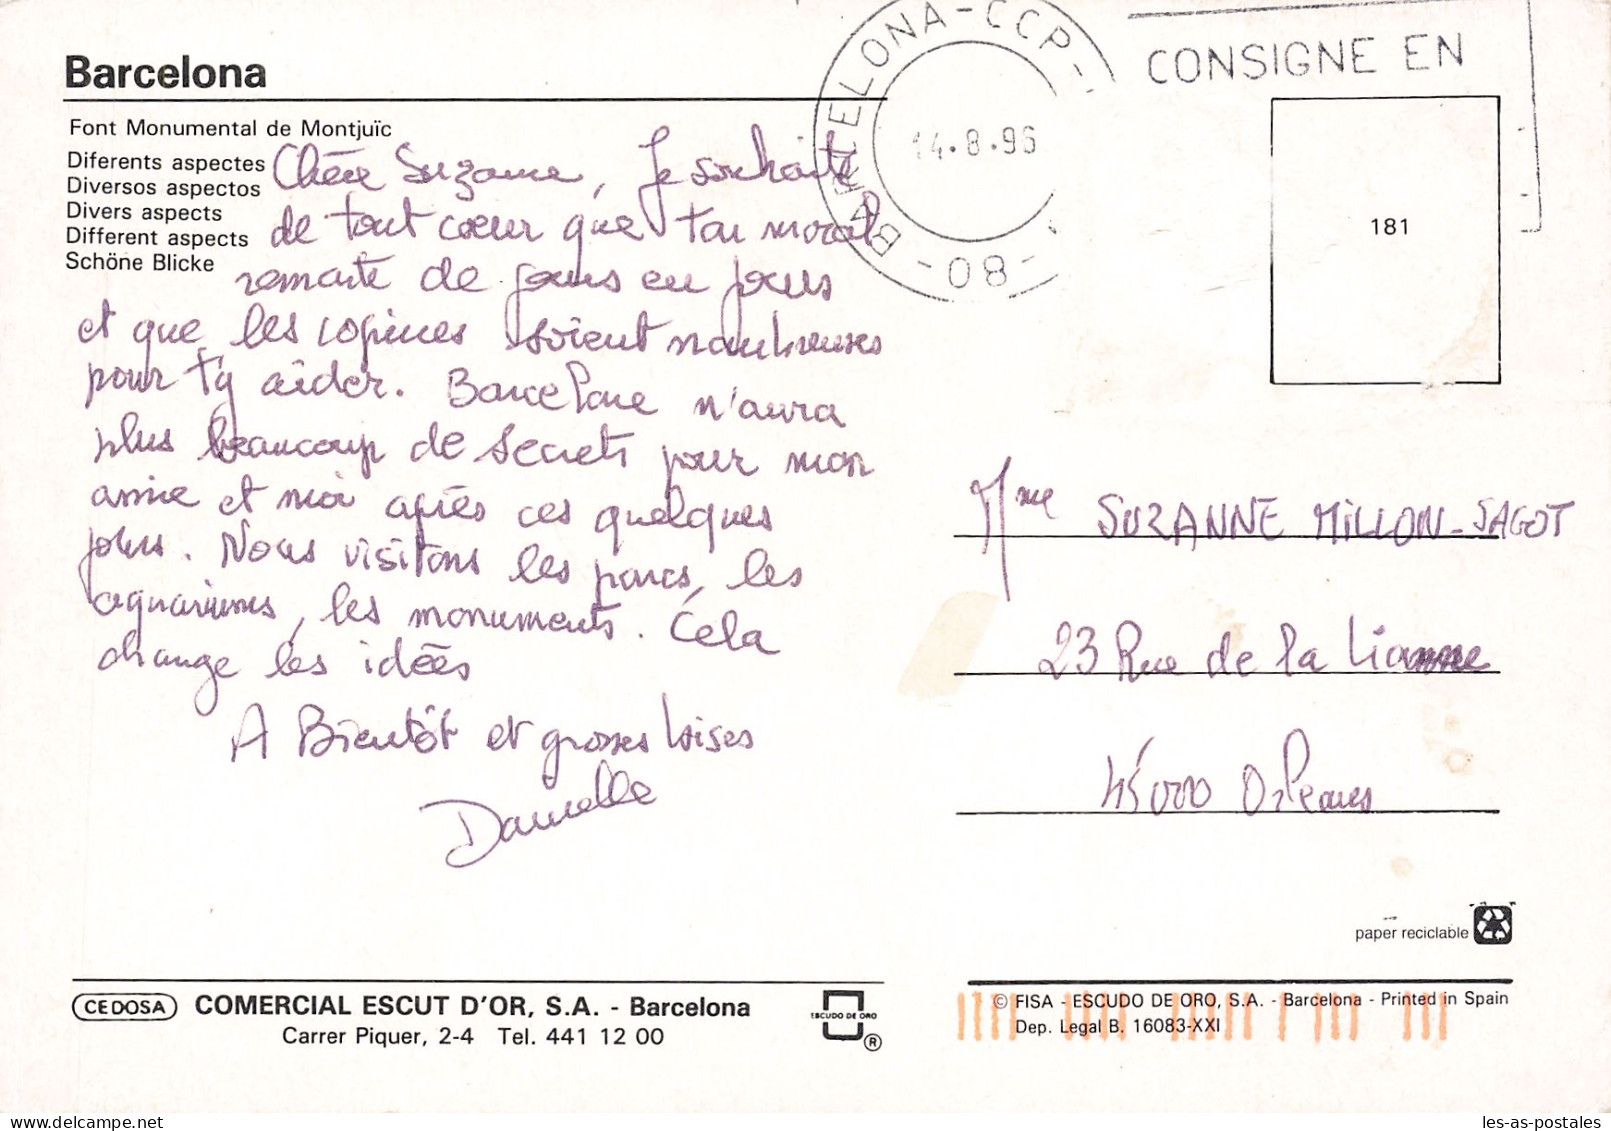 BARCELONA-CCP-
-08-
14.8.96
CONSIGNE EN
181
Barcelona
Font Monumental de Montjuïc
Diferents aspectes
Diversos aspectos
Divers aspects
Different aspects
Schöne Blicke
Chère Suzanne, Je souhaite
de tout cœur que ton moral
remonte de jours en jours
et que les copines soient nombreuses
pour t'y aider. Barcelone n'aura
plus beaucoup de secrets pour mon
amie et moi après ces quelques
jours. Nous visitons les parcs, les
aquariums, les monuments. Cela
change les idées
A Bientôt et grosses bises
Danielle
Mme SUZANNE MILLON-SAGOT
23 Rue de la
45000 Orléans
paper reciclable
CEDOSA COMERCIAL ESCUT D'OR, S.A. - Barcelona
Carrer Piquer, 2-4 Tel. 441 12 00
ESCUDO DE ORO
®
© FISA - ESCUDO DE ORO, S.A. - Barcelona - Printed in Spain
Dep. Legal B. 16083-XXI
les-as-postales